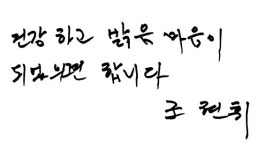 건강 하고 밝은 마음이
되었으면 합니다
조 현휘